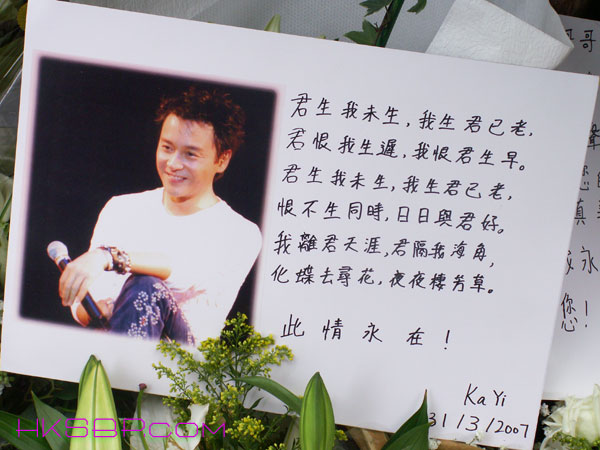 君生我未生，我生君已老，
君恨我生遲，我恨君生早。
君生我未生，我生君已老，
恨不生同時，日日與君好。
我離君天涯，君隔我海角，
化蝶去尋花，夜夜棲芳草。
此情永在！
Ka Yi
31/3/2007
哥
永
您!
HKSBP.COM